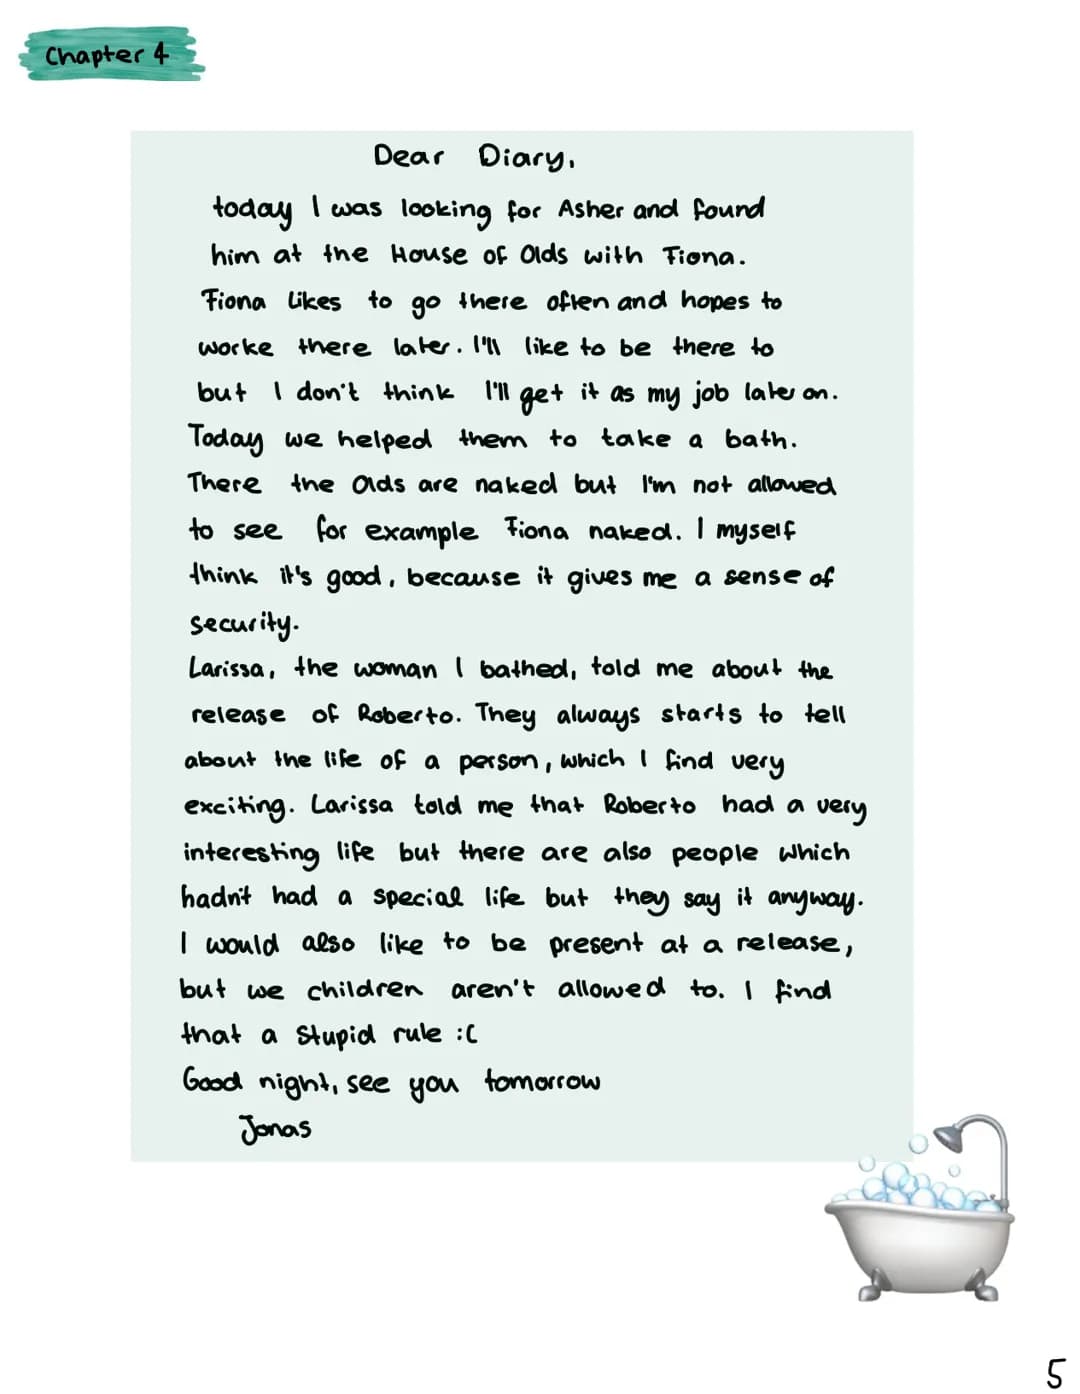 Chapter 4
Dear Diary,
today I was looking for Asher and found
him at the House of Olds with Fiona.
Fiona likes to go there often and hopes to
worke there later. I'll like to be there to
but I don't think I'll get it as my job later on.
Today we helped them to take a bath.
There the Olds are naked but I'm not allowed
to see for example Fiona naked. I myself
think it's good, because it gives me a sense of
security.
Larissa, the woman I bathed, told me about the
release of Roberto. They always starts to tell
about the life of a person, which I find very
exciting. Larissa told me that Roberto had a very
interesting life but there are also people which
hadn't had a special life but they say it anyway.
I would also like to be present at a release,
but we children aren't allowed to. I find
that a stupid rule :(
Good night, see you tomorrow
Jonas
5